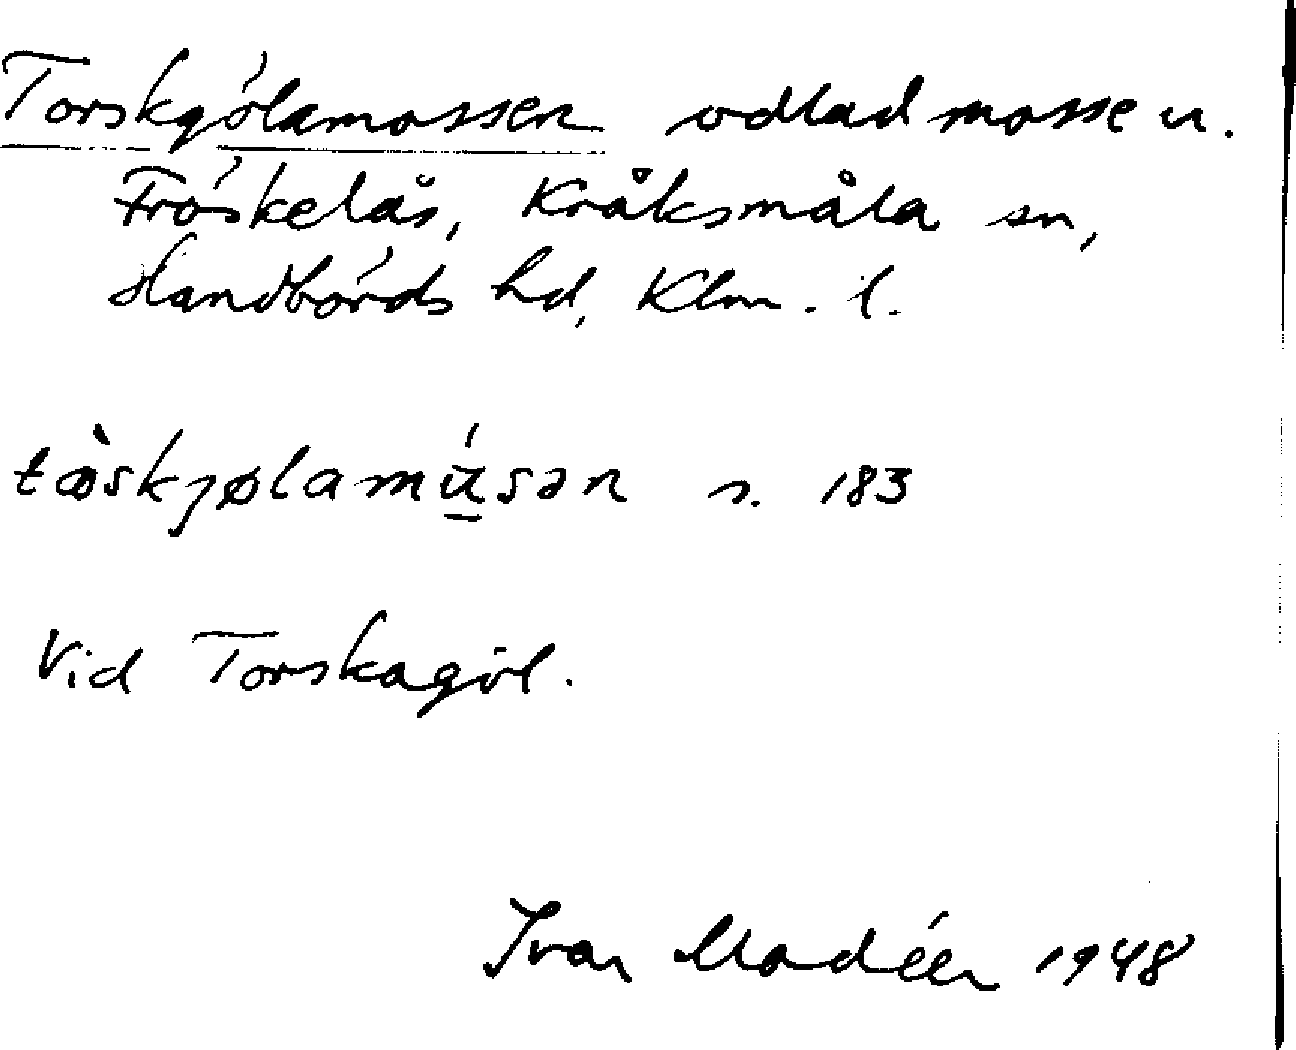 Torskgölamossen odlad mosse u.
Fröskelås, Kråksmåla sn,
Handbörds hd, Klm. l.
tɷ̀skjølamú̱sən s. 183
Vid Torskagöl.
Ivar Modéer 1948